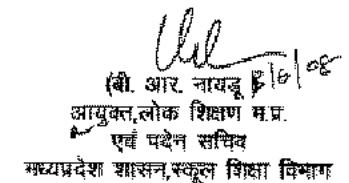 (बी. आर. नायडू) /6/08
आयुक्त,लोक शिक्षण म.प्र.
एवं पदेन सचिव
मध्यप्रदेश शासन,स्कूल शिक्षा विभाग